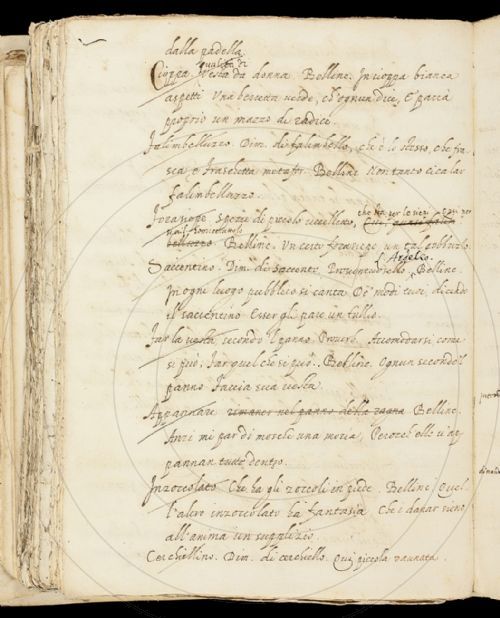 dalla padella.
qualità di
Cioppa. Vesta da donna. Belline. In cioppa bianca
aspetti una berretta verde, ch'ognun dice, E' parrà
proprio un mazzo di radici.
Falimbelluzzo. Dim. di falimbello, che è lo stesso, che fra-
sca, e fraschetta metafor. Belline Non tanto cicalar
falimbelluzzo.
Forasiepe. Spezie di piccolo uccelletto,
Belline. Un certo forasiepe un tal gobbuzzo
L. Argeli
Saccentino. Dim. di saccente. Belline.
In ogni luogo pubblico si canta De' modi tuoi, dicendo
il saccentino Esser gli pare un Tullio.
Far la vesta secondo 'l panno. Proverb. Accomodarsi come
si può, Far quel che si può. Belline. Ognun secondo 'l
panno Faccia sua vesta.
Appannare rimaner nel panno della ragna Belline.
Anzi mi par di morchi una moria, Perocch'elle v'ap-
pannan tutte dentro.
Inzoccolato Che ha gli zoccoli in piede. Belline Quel-
l'altro inzoccolato ha fantasia Che i danar sieno
all'anima un supplizio.
Cerchiellino. Dim. di cerchiello. Qui piccola raunata.